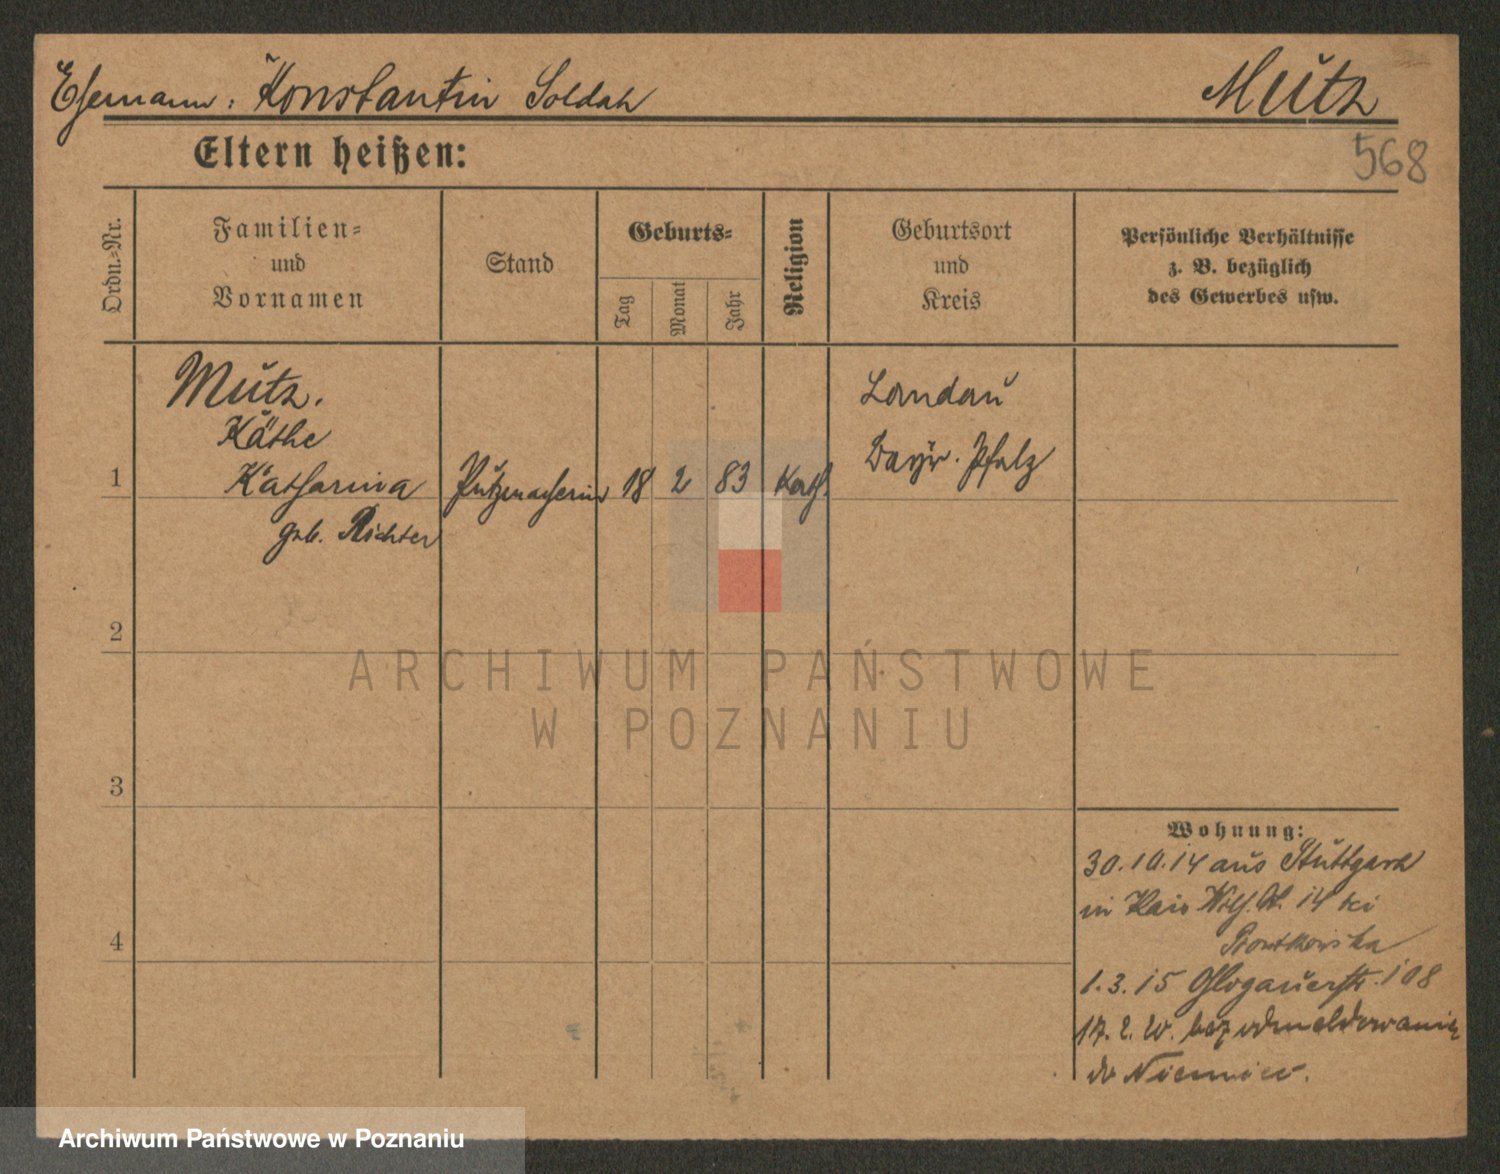 Ehemann: Konstantin Soldat
Mutz
568
Eltern heißen:
Ordn.-Nr.
Familien-
und
Vornamen
Stand
Geburts-
Tag
Monat
Jahr
Religion
Geburtsort
und
Kreis
Persönliche Verhältnisse
z. B. bezüglich
des Gewerbes usw.
1
Mutz.
Käthe
Katharina
geb. Richter
Putzmacherin
18
2
83
Kath.
Landau
Bayr. Pfalz
2
3
4
Wohnung:
30.10.14 aus Stuttgart
in Kais Wilh. St. 14 bei
1.3.15 Glogauerstr. 108
17.2.20. bez odmeldowania
do Niemiec.
ARCHIWUM PAŃSTWOWE
W POZNANIU
Archiwum Państwowe w Poznaniu